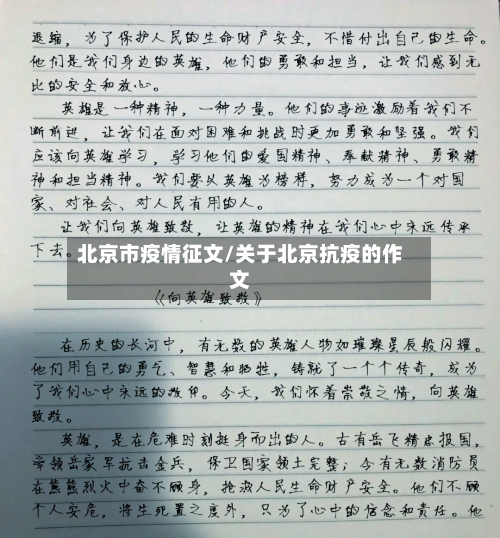 退缩，为了保护人民的生命财产安全，不惜付出自己的生命。
他们是我们身边的英雄，他们的勇敢和担当，让我们感到无
比的安全和放心。
英雄是一种精神，一种力量。他们的事迹激励着我们不
断前进，让我们在面对困难和挑战时更加勇敢和坚强。我们
应该向英雄学习，学习他们的爱国精神、奉献精神、勇敢精
神和担当精神。我们要以英雄为榜样，努力成为一个对国
家、对社会、对人民有用的人。
让我们向英雄致敬，让英雄的精神在我们心中永远传承
下去。
北京市疫情征文/关于北京抗疫的作
文
《向英雄致敬》
在历史的长河中，有无数的英雄人物如璀璨星辰般闪耀。
他们用自己的勇气、智慧和牺牲，铸就了一个个传奇，成为
了我们心中永远的。今天，我们怀着崇敬之情，向英雄
致敬。
英雄，是在危难时刻挺身而出的人。古有岳飞精忠报国，
率领岳家军抗击金兵，保卫国家领土完整；今有无数消防员
在熊熊烈火中奋不顾身，抢救人民生命财产安全。他们不顾
个人安危，将生死置之度外，只为了心中的信念和责任。他